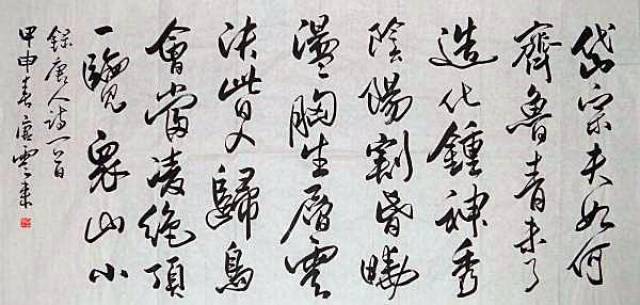 岱宗夫如何
齊魯青未了
造化鍾神秀
陰陽割昏曉
盪胸生層雲
決眥入歸鳥
會當凌絕頂
一覽眾山小
錄唐人詩一首
甲申春唐雲來